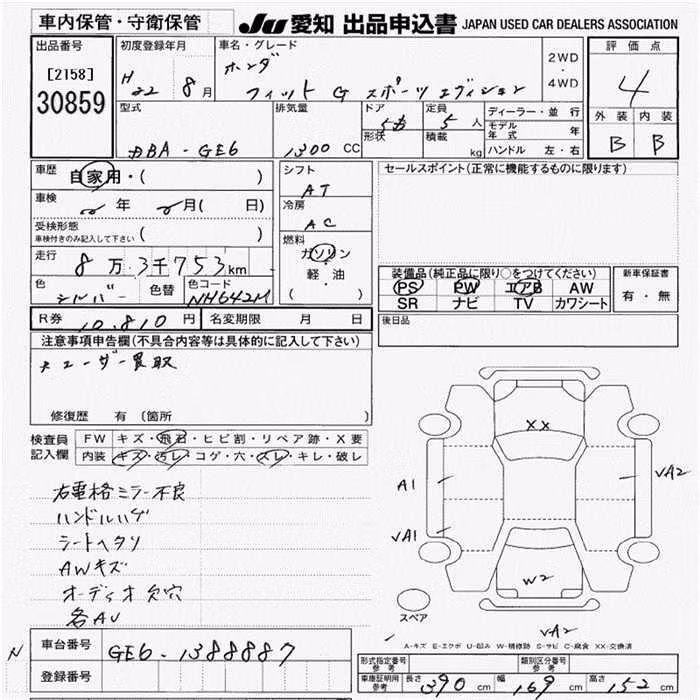 車内保管・守衛保管
JU 愛知 出品申込書 JAPAN USED CAR DEALERS ASSOCIATION
出品番号
[2158]
30859
初度登録年月
H 22 8月
車名・グレード
ホンダ
フィット G スポーツ エディション
2WD
・
4WD
評価点
4
外装 内装
B B
型式
DBA - GE6
排気量
1300 CC
ドア
5D
形状
定員
5人
積載
kg
ディーラー・並行
モデル年式 年
ハンドル 左・右
車歴
自家用・( )
車検
年 月( 日)
受検形態
車検付きのみ記入して下さい ( )
走行
8万3千753km
色
シルバー
色替
色コード
NH642M
シフト
AT
冷房
AC
燃料
ガソリン
・
軽・油
( )
セールスポイント(正常に機能するものに限ります)
装備品(純正品に限り○をつけてください)
PS PW エアB AW
SR ナビ TV カワシート
新車保証書
有・無
R券 10.810円 名変期限 月 日
後日品
注意事項申告欄(不具合内容等は具体的に記入して下さい)
ユーザー買取
修復歴 有(箇所
検査員
記入欄
FW キズ・飛石・ヒビ割・リペア跡・X要
内装 キズ・汚レ・コゲ・穴・スレ・キレ・破レ
右電格ミラー不良
ハンドルハゲ
シートヘタリ
AWキズ
オーディオ欠穴
各AU
XX
A1
VA1
VA2
W2
VA2
スペア
A-キズ E-エクボ U-凹み W-補修跡 S-サビ C-腐食 XX-交換済
N
車台番号
GE6-1388887
登録番号
形式指定番号 参考
類別区分番号 参考
車庫証明用 参考 長さ 390 cm 幅 169 cm 高さ 152 cm